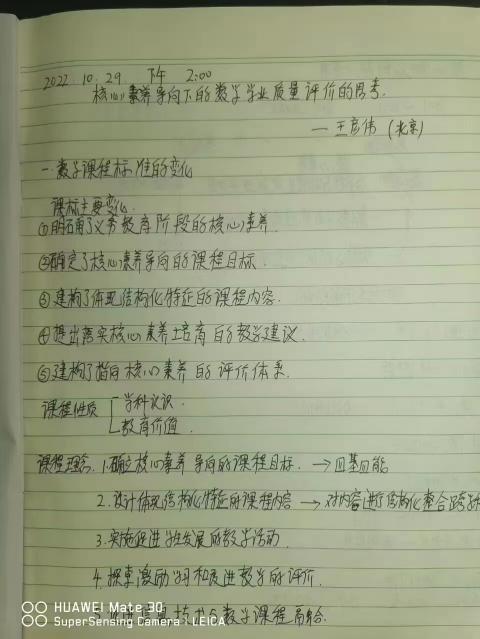 2022.10.29 下午 2:00
核心素养导向下的数学学业质量评价的思考.
— 王彦伟 (北京)
一.数学课程标准的变化
课标主要变化.
①明确了义务教育阶段的核心素养.
②确定了核心素养导向的课程目标.
③建构了体现结构化特征的课程内容.
④提出落实核心素养培育的教学建议.
⑤建构了指向核心素养的评价体系.
课程性质 学科认识.
教育价值.
课程理念. 1.确立核心素养导向的课程目标. → 四基四能
2.设计体现结构化特征的课程内容 → 对内容进行结构化整合 跨学
3.实施促进学生发展的教学活动.
4.探索激励学习和改进教学的评价.
5.促进信息技术与数学课程融合.
HUAWEI Mate 30
SuperSensing Camera · LEICA